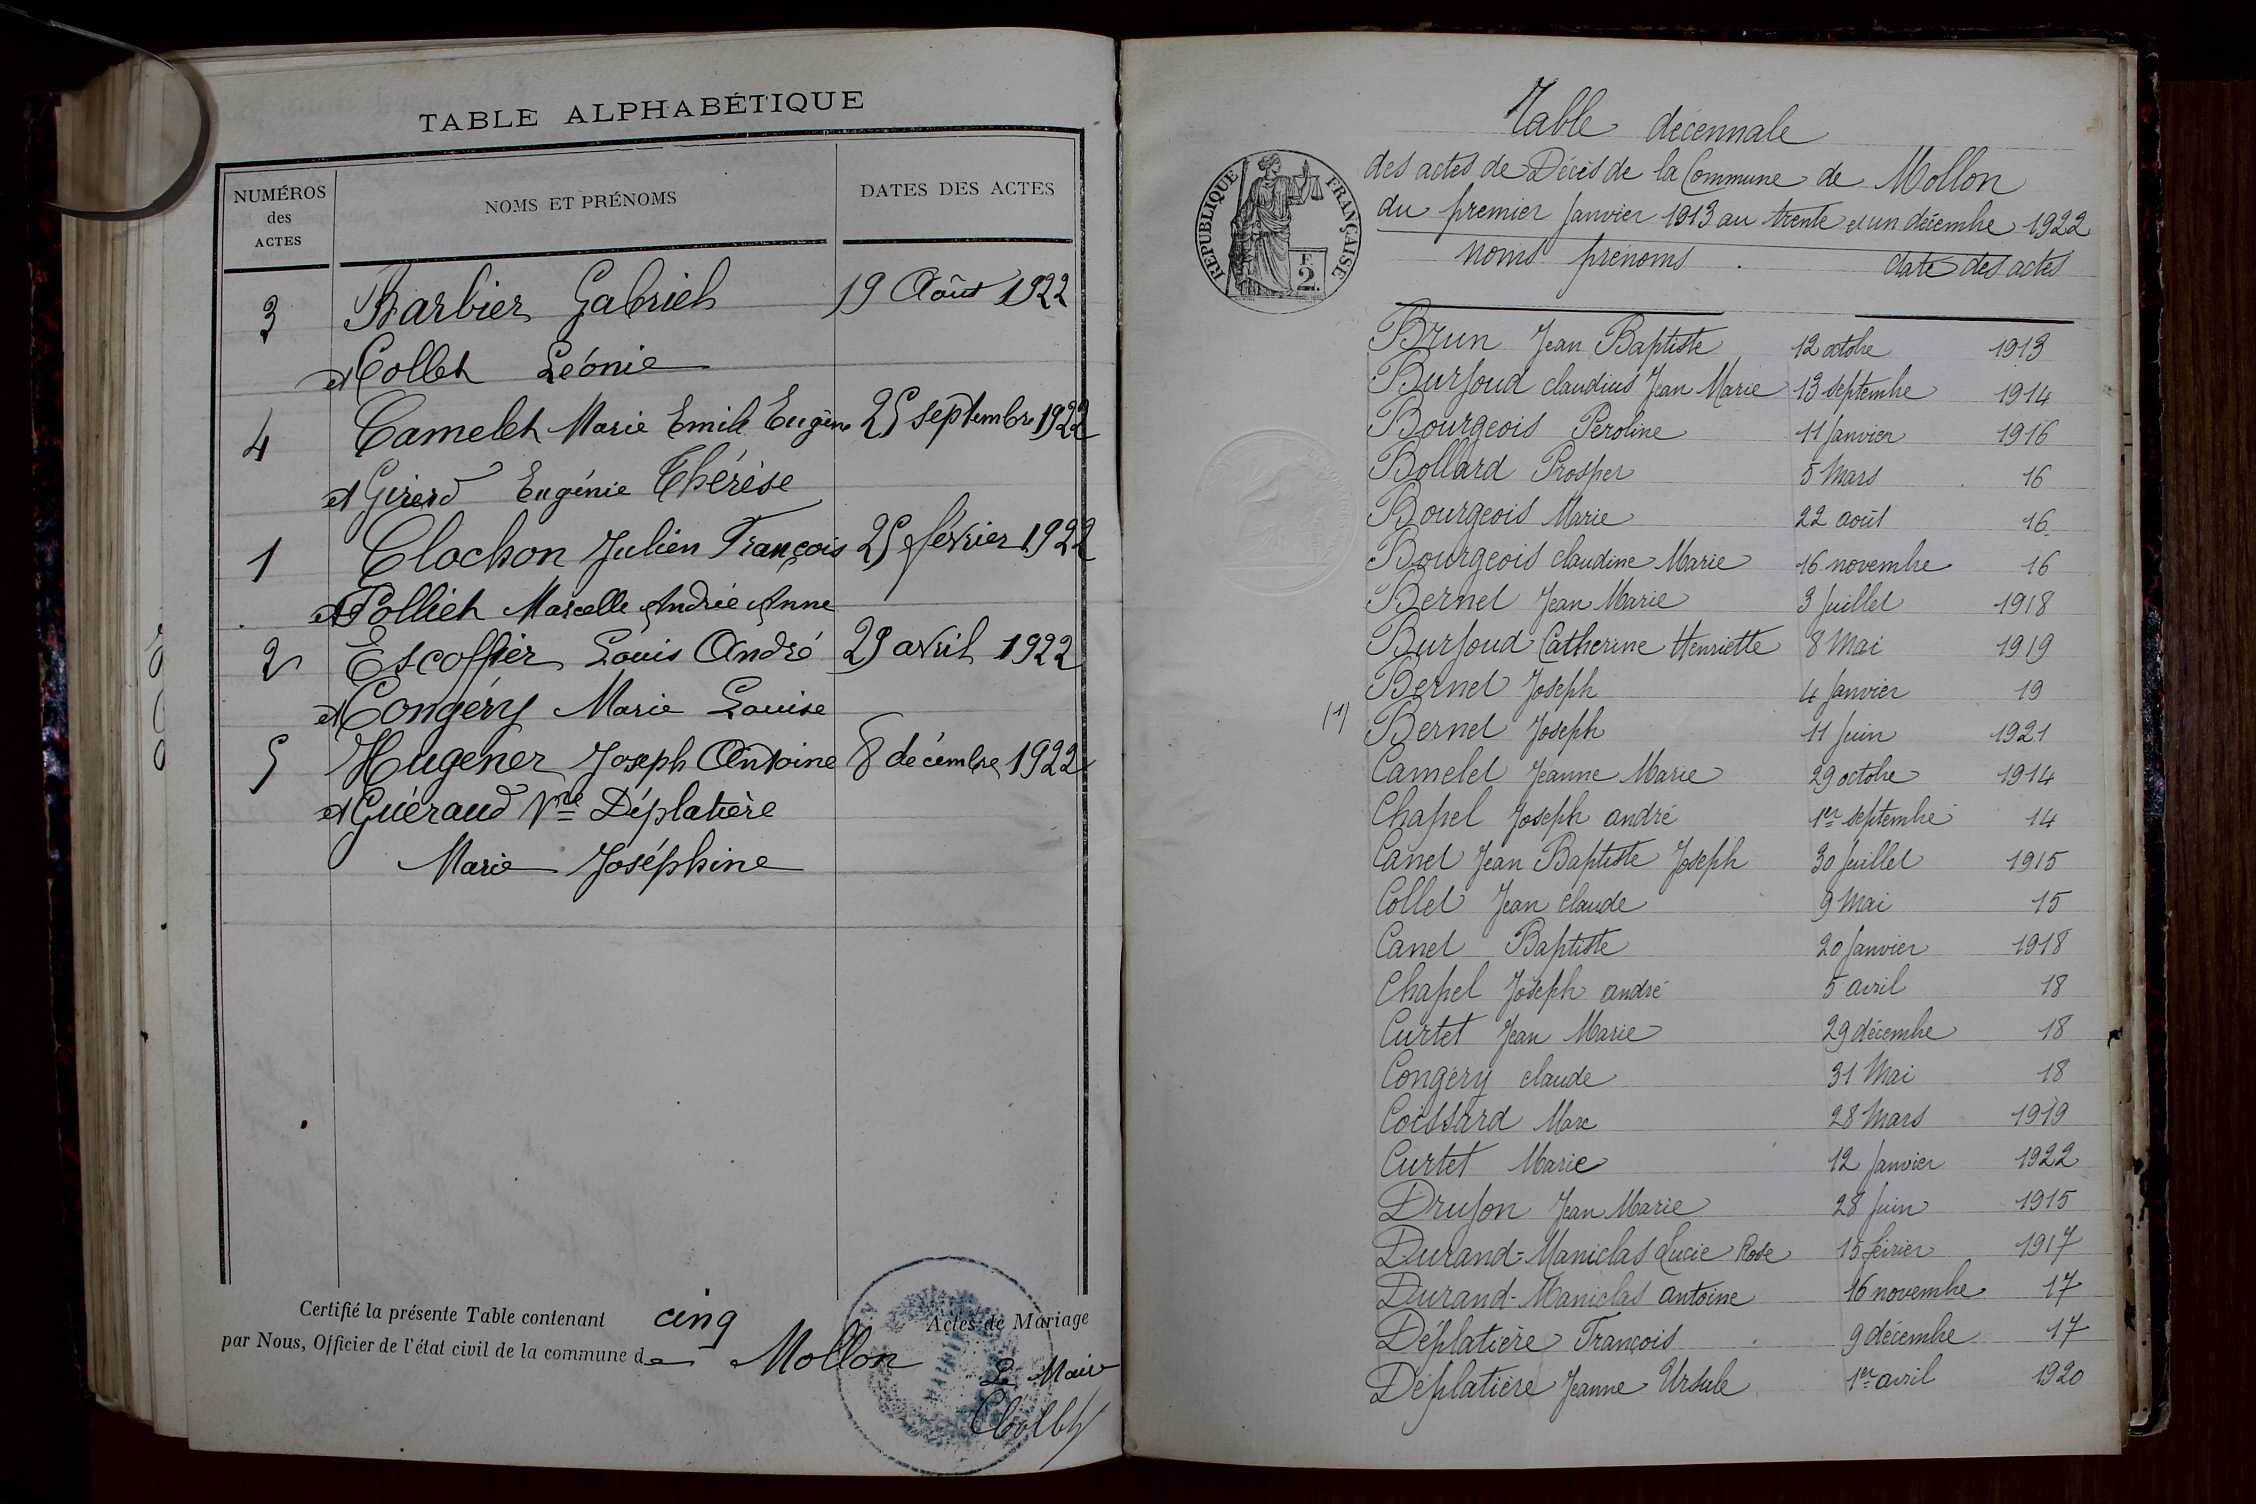 TABLE ALPHABÉTIQUE
NUMÉROS des ACTES NOMS ET PRÉNOMS DATES DES ACTES
3 Barbier Gabriel 19 Août 1922
et Collet Léonie
4 Camelet Marie Emile Eugène 25 septembre 1922
et Girerd Eugénie Thérèse
1 Clochon Julien François 25 février 1922
et Polliet Marcelle Andrée Anne
2 Escoffier Louis André 29 avril 1922
et Congéry Marie Louise
5 Hugener Joseph Antoine 8 décembre 1922
et Guéraud Vve Déplatière
Marie Joséphine
Certifié la présente Table contenant cinq Actes de Mariage
par Nous, Officier de l'état civil de la commune de Mollon
Le Maire
Table décennale
des actes de Décès de la Commune de Mollon
du premier Janvier 1913 au trente et un décembre 1922
noms prénoms . date des actes
RÉPUBLIQUE FRANÇAISE
F
2.
Brun Jean Baptiste 12 octobre 1913
Burjoud claudius Jean Marie 13 septembre 1914
Bourgeois Peroline 11 Janvier 1916
Bollard Prosper 5 Mars 16
Bourgeois Marie 22 août 16
Bourgeois claudine Marie 16 novembre 16
Bernet Jean Marie 3 Juillet 1918
Burjoud Catherine Henriette 8 Mai 1919
Bernet Joseph 4 Janvier 19
(1) Bernet Joseph 11 Juin 1921
Camelet Jeanne Marie 29 octobre 1914
Chapel Joseph andré 1er septembre 14
Canet Jean Baptiste Joseph 30 Juillet 1915
Collet Jean claude 9 Mai 15
Canet Baptiste 20 Janvier 1918
Chapel Joseph andré 5 avril 18
Curtet Jean Marie 29 décembre 18
Congéry claude 31 Mai 18
Coissard Marc 28 Mars 1919
Curtet Marie 12 Janvier 1922
Drujon Jean Marie 28 Juin 1915
Durand-Maniclas Lucie Rose 15 février 1917
Durand-Maniclas antoine 16 novembre 17
Déplatière François 9 décembre 17
Déplatière Jeanne Ursule 1er avril 1920